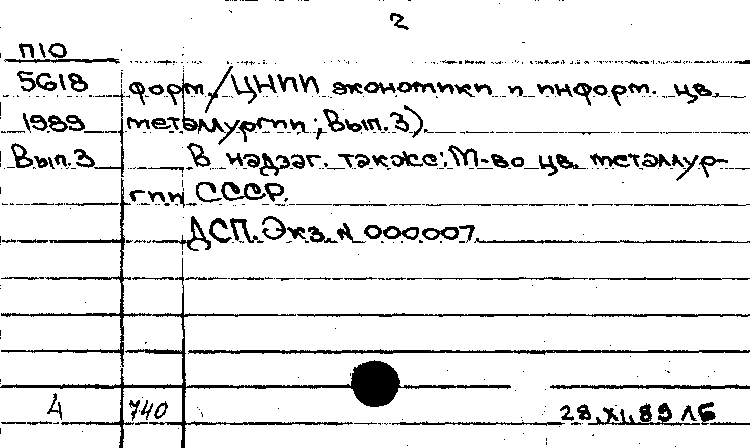 2
П10
5618 форм./ЦНИИ экономики и информ. цв.
1989 металлургии; Вып.3).
Вып.3 В надзаг. также: М-во цв. металлур-
гии СССР.
ДСП. Экз. N 000007.
4 740 28.XI.89 ЛБ